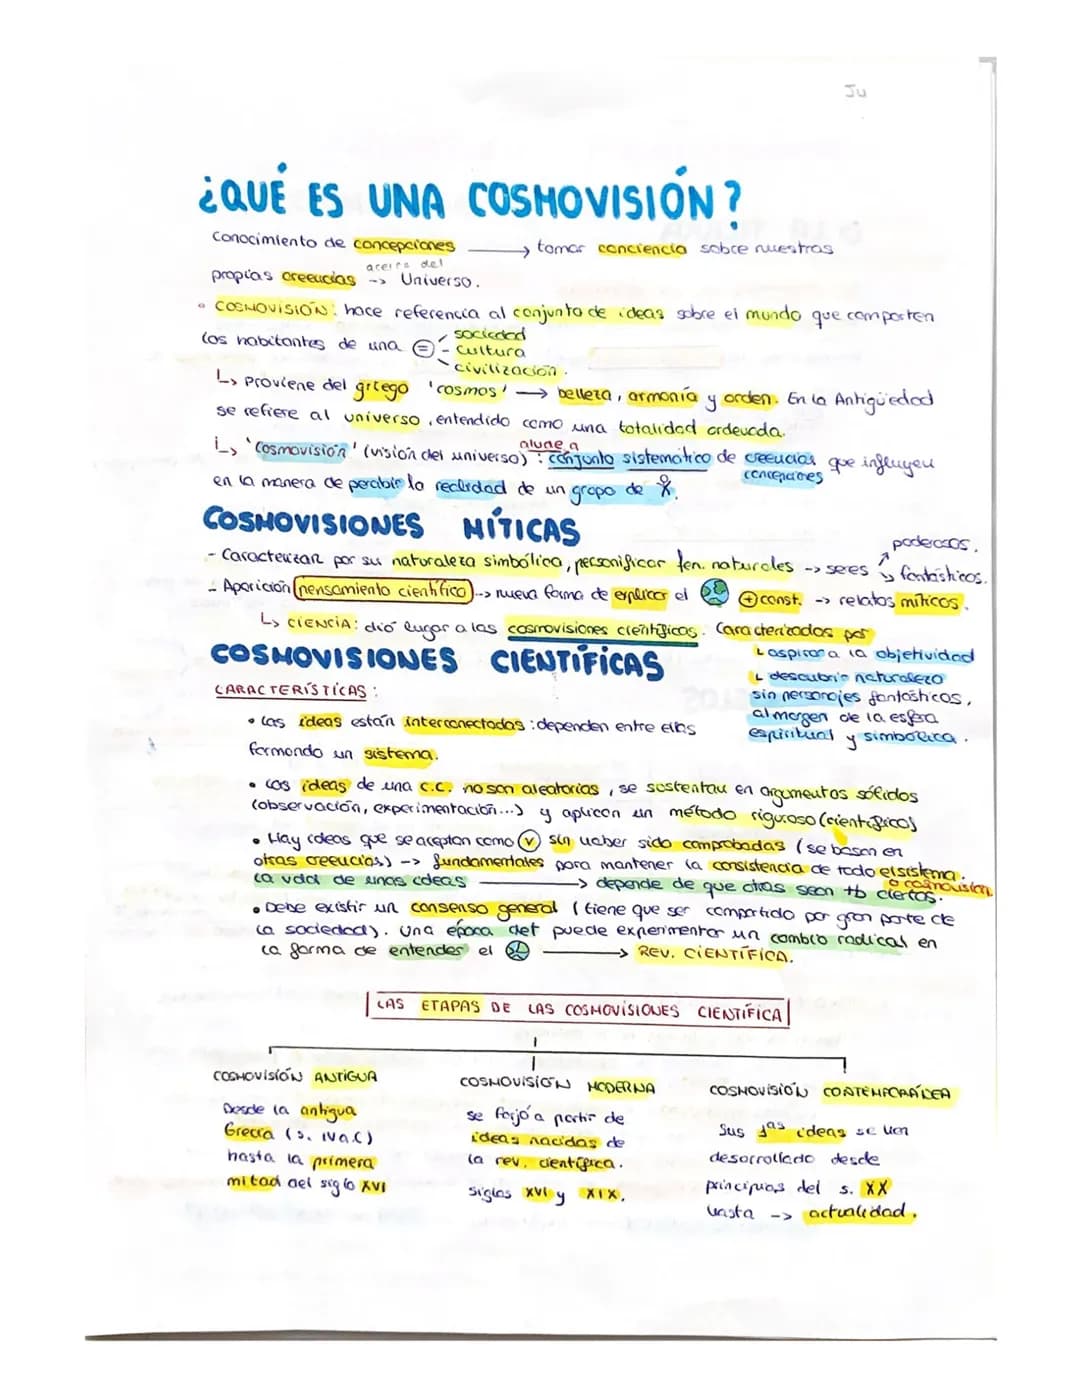 ¿QUÉ ES UNA COSMOVISIÓN?
Conocimiento de concepciones → tomar conciencia sobre nuestras
propias creencias acerca del --> Universo.
• COSMOVISIÓN: hace referencia al conjunto de ideas sobre el mundo que comparten
los habitantes de una = - sociedad
- cultura
- civilización.
↳ Proviene del griego 'cosmos' → belleza, armonía y orden. En la Antigüedad
se refiere al universo, entendido como una totalidad ordenada.
↳ 'Cosmovisión' (visión del universo): alude a conjunto sistemático de creencias que influyen
concepciones
en la manera de percibir la realidad de un grupo de
COSMOVISIONES MÍTICAS
- Caracterizan por su naturaleza simbólica, personificar fen. naturales -> seres poderosos.
fantásticos.
- Aparición pensamiento científico --> nueva forma de explicar el + const. -> relatos míticos.
↳ CIENCIA: dió lugar a las cosmovisiones científicas. Caracterizadas por
↳ aspirar a la objetividad
↳ descubrir naturaleza
sin personajes fantásticos,
al margen de la esfera
espiritual y simbólica.
COSMOVISIONES CIENTÍFICAS
CARACTERÍSTICAS:
• Las ideas están interconectadas: dependen entre ellas
formando un sistema.
• Los ideas de una c.c. no son aleatorias, se sustentan en argumentos sólidos
(observación, experimentación...) y aplican un método riguroso (científico)
• Hay ideas que se aceptan como V sin haber sido comprobadas (se basan en
otras creencias) -> fundamentales para mantener la consistencia de todo el sistema.
o cosmovisión
La vdad de unas ideas → depende de que otras sean tb ciertas.
• Debe existir un consenso general (tiene que ser compartido por gran parte de
la sociedad). Una época det puede experimentar un cambio radical en
la forma de entender el → REV. CIENTÍFICA.
LAS ETAPAS DE LAS COSMOVISIONES CIENTÍFICA
COSMOVISIÓN ANTIGUA
Desde la antigua
Grecia (s. IV a.C)
hasta la primera
mitad del siglo XVI
COSMOVISIÓN MODERNA
se forjó a partir de
ideas nacidas de
la rev. científica.
Siglos XVI y XIX.
COSMOVISIÓN CONTEMPORÁNEA
Sus 1as ideas se han
desarrollado desde
principios del s. XX
hasta -> actualidad.